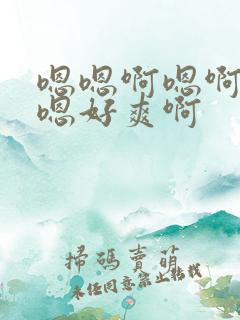 嗯嗯啊嗯啊
嗯好爽啊
掃碼賣萌
未經同意禁止轉載